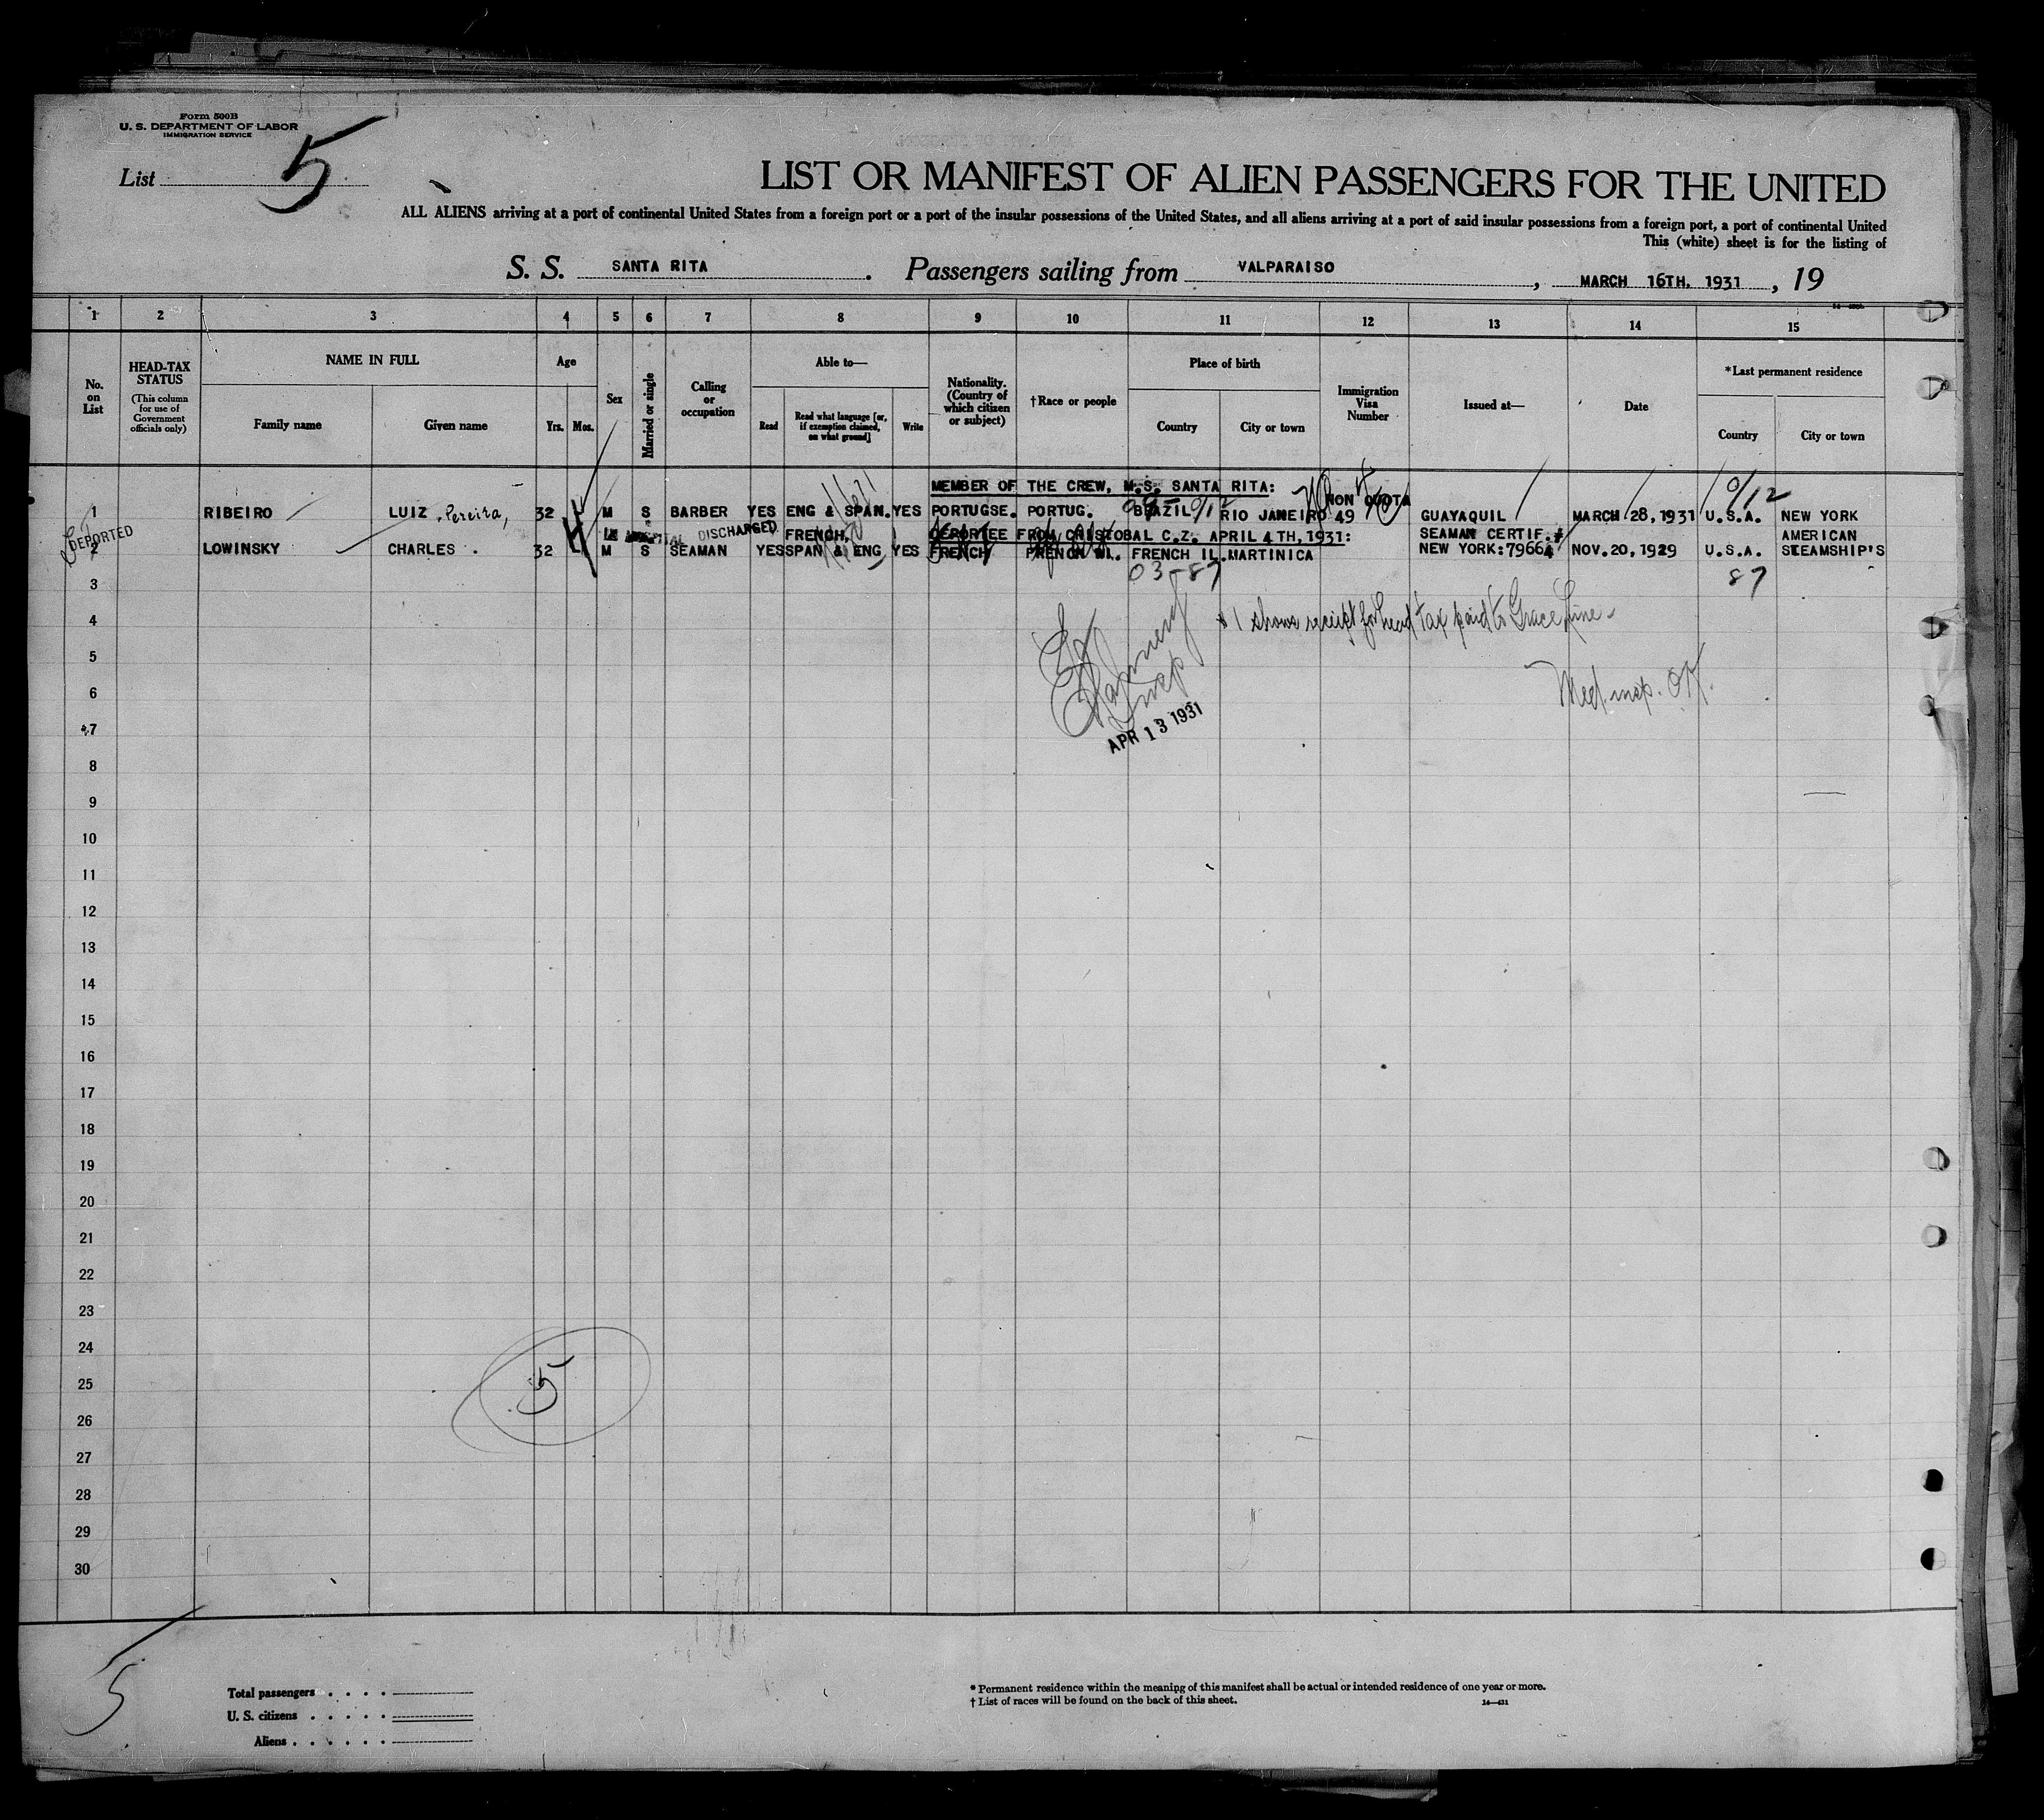 Form 500B
U. S. DEPARTMENT OF LABOR
IMMIGRATION SERVICE
List 5
LIST OR MANIFEST OF ALIEN PASSENGERS FOR THE UNITED
ALL ALIENS arriving at a port of continental United States from a foreign port or a port of the insular possessions of the United States, and all aliens arriving at a port of said insular possessions from a foreign port, a port of continental United
This (white) sheet is for the listing of
S. S. SANTA RITA. Passengers sailing from VALPARAISO, MARCH 16TH. 1931, 19
1 2 3 4 5 6 7 8 9 10 11 12 13 14 15
No. on List
HEAD-TAX STATUS
(This column for use of Government officials only)
NAME IN FULL
Family name
Given name
Age
Yrs.
Mos.
Sex
Married or single
Calling or occupation
Able to—
Read
Read what language [or, if exemption claimed, on what ground]
Write
Nationality. (Country of which citizen or subject)
†Race or people
Place of birth
Country
City or town
Immigration Visa Number
Issued at—
Date
*Last permanent residence
Country
City or town
MEMBER OF THE CREW, M.S. SANTA RITA:
NON QUOTA
0/12
1 RIBEIRO LUIZ Pereira, 32 M S BARBER YES ENG & SPAN. YES PORTUGSE. PORTUG. BRAZIL RIO JANEIRO 49 GUAYAQUIL MARCH 28, 1931 U.S.A. NEW YORK
DEPORTED
IN HOSPITAL DISCHARGED
FRENCH, DEPORTEE FROM CRISTOBAL C.Z. APRIL 4TH, 1931: SEAMAN CERTIF.# AMERICAN
2 LOWINSKY CHARLES. 32 M S SEAMAN YES SPAN & ENG YES FRENCH FRENCH WI. FRENCH IL. MARTINICA NEW YORK: 79664 NOV. 20, 1929 U.S.A. STEAMSHIP'S
3 03-87 87
4 #1 shows receipt for head tax paid to Grace Line-
5
6 Med. insp. OK.
7
APR 13 1931
8
9
10
11
12
13
14
15
16
17
18
19
20
21
22
23
24
25 5
26
27
28
29
30
5
Total passengers
U. S. citizens
Aliens
* Permanent residence within the meaning of this manifest shall be actual or intended residence of one year or more.
† List of races will be found on the back of this sheet.
14—431